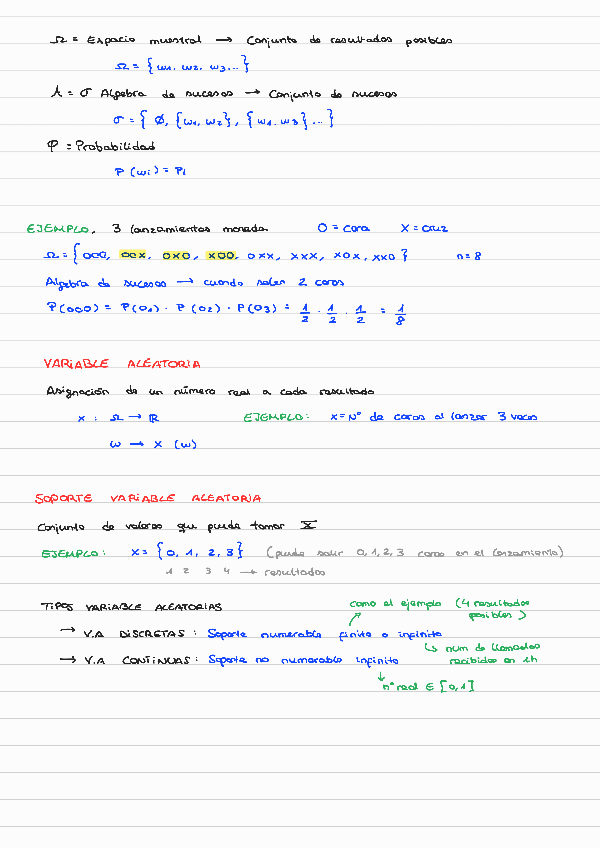 Ω = Espacio muestral → Conjunto de resultados posibles
Ω = { ω1, ω2, ω3... }
A = σ Algebra de sucesos → Conjunto de sucesos
σ = { Ø, {ω1, ω2}, {ω1, ω3} ... }
P = Probabilidad
P (ωi) = Pi
EJEMPLO. 3 lanzamientos moneda O = cara X = cruz
Ω = { OOO, OOX, OXO, XOO, OXX, XXX, XOX, XXO } n = 8
Algebra de sucesos → cuando salen 2 caras
P(OOO) = P(O1) · P(O2) · P(O3) = 1/2 · 1/2 · 1/2 = 1/8
VARIABLE ALEATORIA
Asignación de un número real a cada resultado
X : Ω → ℝ EJEMPLO: X = Nº de caras al lanzar 3 veces
ω → X (ω)
SOPORTE VARIABLE ALEATORIA
Conjunto de valores que puede tomar X
EJEMPLO: X = { 0, 1, 2, 3 } (puede salir 0, 1, 2, 3 caras en el lanzamiento)
1 2 3 4 → resultados
TIPOS VARIABLE ALEATORIAS como el ejemplo (4 resultados posibles)
→ V.A DISCRETAS: Soporte numerable finito o infinito
↳ num de llamadas recibidas en 1h
→ V.A CONTINUAS: Soporte no numerable infinito
↓
nº real ∈ [0,1]